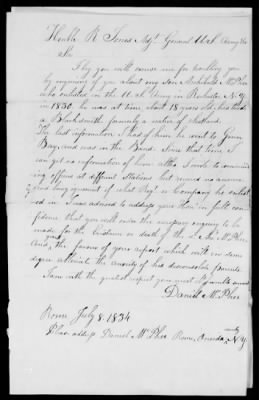 Honble R Jones Adjt General U.S. Army
Sir
I beg you will excuse me for troubling you
by enquiring of you about my Son Archibald McPhee
who enlisted in the U.S. Army in Rochester N.Y
in 1830 he was at time about 18 years old, his trade
a Blacksmith formerly a native of Scotland.
The last information I had of him he went to Green
Bay, and was in the Band. Since that time I
can get no information of him altho I wrote to command
ing officers at different Stations but received no answer
long enquiment of what Regt or Company he enlist
ed in I was advised to address your Honr in full con
fidence that you will cause the necessary enquiry to be
made for the Existence or death of the Sd A. McPhee
And the favour of your report which will in some
degree alleviate the anxiety of his disconsolate parents
I am with the greatest respect your most Obt humble Servant
Daniel McPhee
Rome July 8. 1834
Please address Daniel McPhee Rome, Oneida county N.Y.